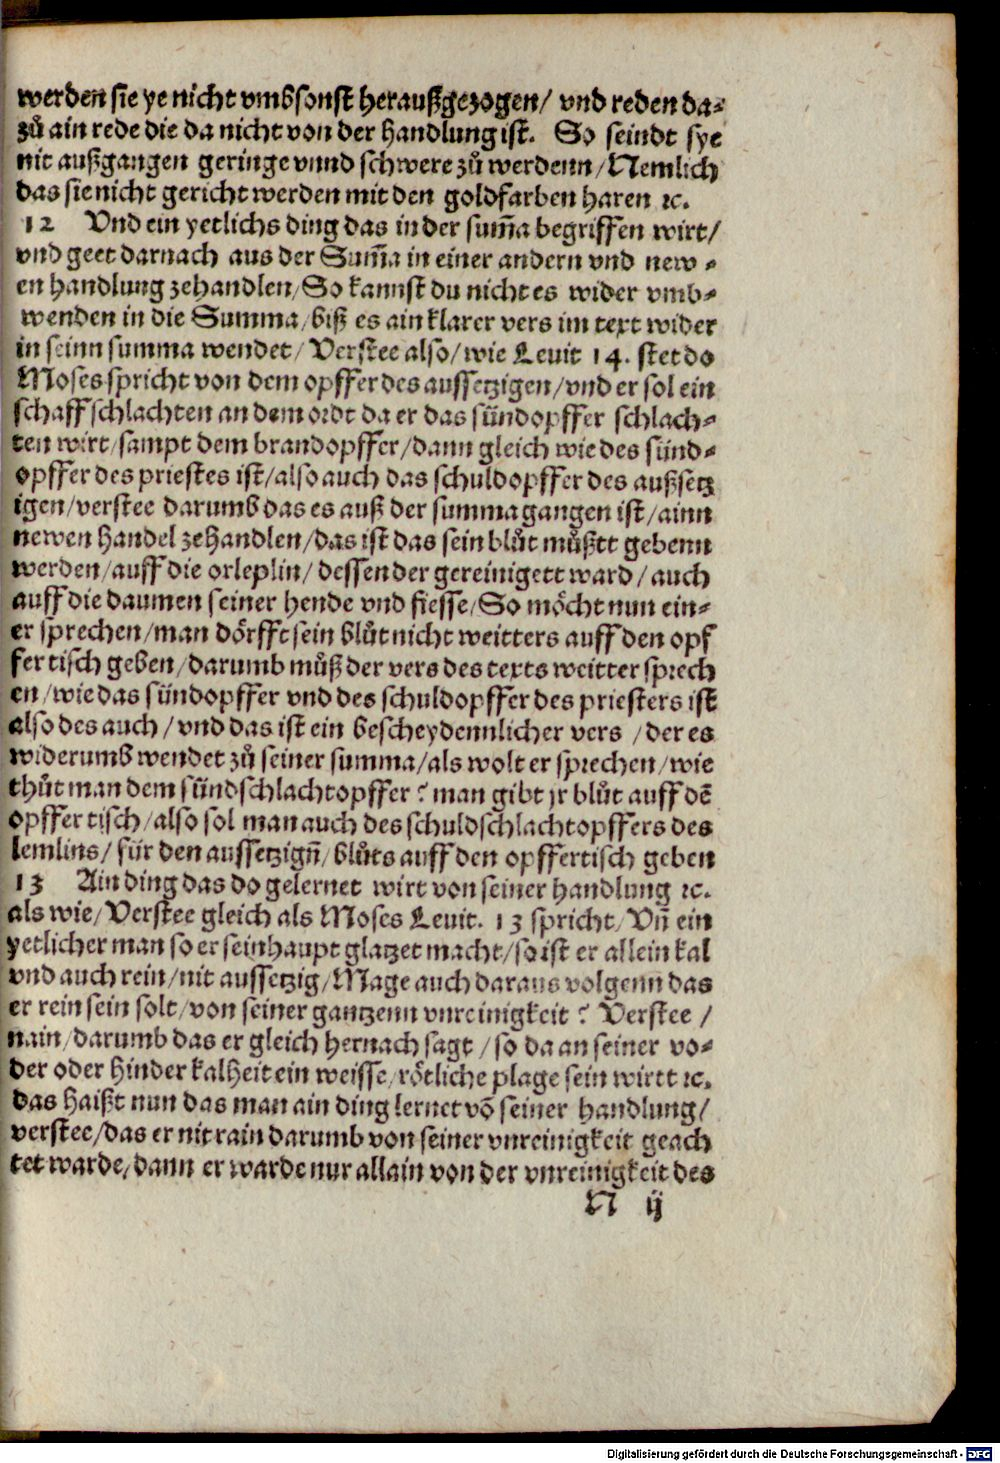 werden sie ye nicht vmbsonst heraußgezogen/ vnd reden da⸗
zů ain rede die da nicht von der handlung ist. So seindt sye
nit außgangen geringe vnnd schwere zů werdenn/Nemlich
das sie nicht gericht werden mit den goldfarben haren ꝛc.
12 Vnd ein yetlichs ding das in der sum̃a begriffen wirt/
vnd geet darnach aus der Sum̃a in einer andern vnd new⸗
en handlung zehandlen/So kannst du nicht es wider vmb⸗
wenden in die Summa/biß es ain klarer vers im text wider
in seinn summa wendet/ Verstee also/wie Leuit 14. stet do
Moses spricht von dem opffer des aussetzigen/vnd er sol ein
schaff schlachten an dem ordt da er das sündopffer schlach⸗
ten wirt/sampt dem brandopffer/dann gleich wie des sünd⸗
opffer des priestes ist/also auch das schuldopffer des außsetz
igen/verstee darumb das es auß der summa gangen ist/ainn
newen handel zehandlen/das ist das sein blůt můßtt gebenn
werden/auff die orleplin/ dessen der gereinigett ward/ auch
auff die daumen seiner hende vnd fiesse/So möcht nun ein⸗
er sprechen/man dörfft sein blůt nicht weitters auff den opf
fertisch geben/darumb můß der vers des texts weitter sprech
en/wie das sündopffer vnd des schuldopffer des priesters ist
also des auch/vnd das ist ein bescheydennlicher vers /der es
widerumb wendet zů seiner summa/als wolt er sprechen/wie
thůt man dem sündschlachtopffer? man gibt jr blůt auff dẽ
opffertisch/also sol man auch des schuldschlachtopffers des
lemlins/ für den aussetzigñ/blůts auff den opffertisch geben
13 Ain ding das do gelernet wirt von seiner handlung ꝛc.
als wie/Verstee gleich als Moses Leuit. 13 spricht/Vñ ein
yetlicher man so er sein haupt glatzet macht/so ist er allein kal
vnd auch rein/nit aussetzig/Mage auch daraus volgenn das
er rein sein solt/von seiner gantzenn vnreinigkeit? Verstee /
nain/darumb das er gleich hernach sagt /so da an seiner vo⸗
der oder hinder kalheit ein weisse/rötliche plage sein wirtt ꝛc.
das haißt nun das man ain ding lernet võ seiner handlung/
verstee/das er nit rain darumb von seiner vnreinigkeit geach
tet warde/dann er warde nur allain von der vnreinigkeit des
N ij
Digitalisierung gefördert durch die Deutsche Forschungsgemeinschaft - DFG